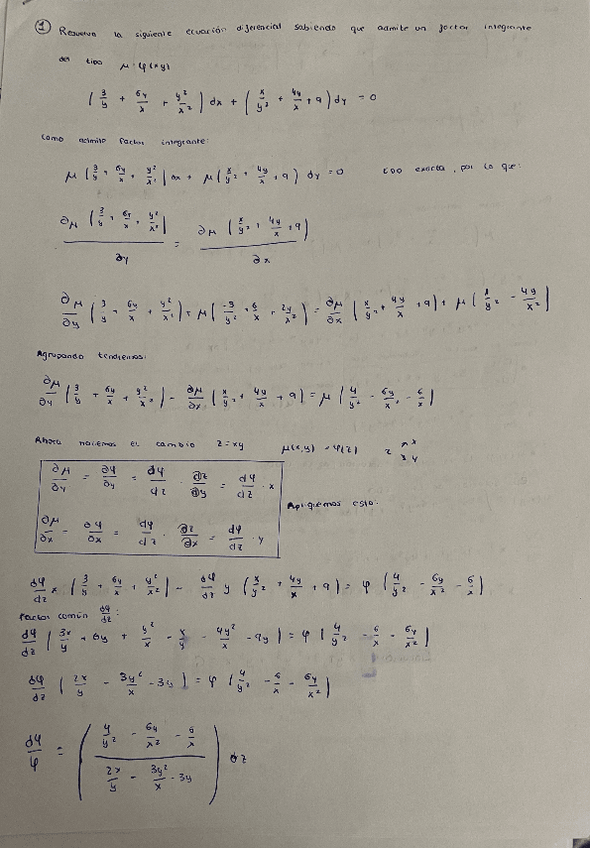 ① Resuelva la siguiente ecuación diferencial sabiendo que admite un factor integrante
del tipo μ = φ(xy)
(3/y + 6y/x + y²/x²) dx + (x/y² + 4y/x + 9) dy = 0
Como admite factor integrante:
μ (3/y + 6y/x + y²/x²) dx + μ (x/y² + 4y/x + 9) dy = 0 EDO exacta, por lo que:
∂μ (3/y + 6y/x + y²/x²) / ∂y = ∂μ (x/y² + 4y/x + 9) / ∂x
∂μ/∂y (3/y + 6y/x + y²/x²) + μ (-3/y² + 6/x + 2y/x²) = ∂μ/∂x (x/y² + 4y/x + 9) + μ (1/y² - 4y/x²)
Agrupando tendremos:
∂μ/∂y (3/y + 6y/x + y²/x²) - ∂μ/∂x (x/y² + 4y/x + 9) = μ (4/y² - 6y/x² - 6/x)
Ahora hacemos el cambio z = xy μ(x,y) = φ(z) z x y
∂μ/∂y = ∂φ/∂y = dφ/dz · ∂z/∂y = dφ/dz · x
Apliquemos esto:
∂μ/∂x = ∂φ/∂x = dφ/dz · ∂z/∂x = dφ/dz · y
dφ/dz x (3/y + 6y/x + y²/x²) - dφ/dz y (x/y² + 4y/x + 9) = φ (4/y² - 6y/x² - 6/x)
Factor común dφ/dz :
dφ/dz (3x/y + 6y + y²/x - x/y - 4y²/x - 9y) = φ (4/y² - 6/x - 6y/x²)
dφ/dz (2x/y - 3y²/x - 3y) = φ (4/y² - 6/x - 6y/x²)
dφ/φ = ((4/y² - 6y/x² - 6/x) / (2x/y - 3y²/x - 3y)) dz